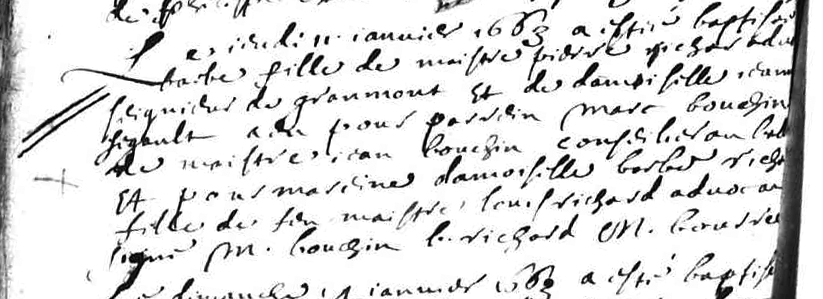 de
Le jeudi 11 januier 1663 a esté baptisée
barbe fille de maistre pierre richard aduo
seigneur de granmont Et de damoiselle jeann
Segault a eu pour parrein Marc bouchin
de maistre jean bouchin conseiller au bail
Et pour mareine damoiselle barbe richa
fille de feu maistre louis richard aduocat
signé M. bouchin b. richard M. bourée
Le dimanche 14 januier 1663 a esté baptisé